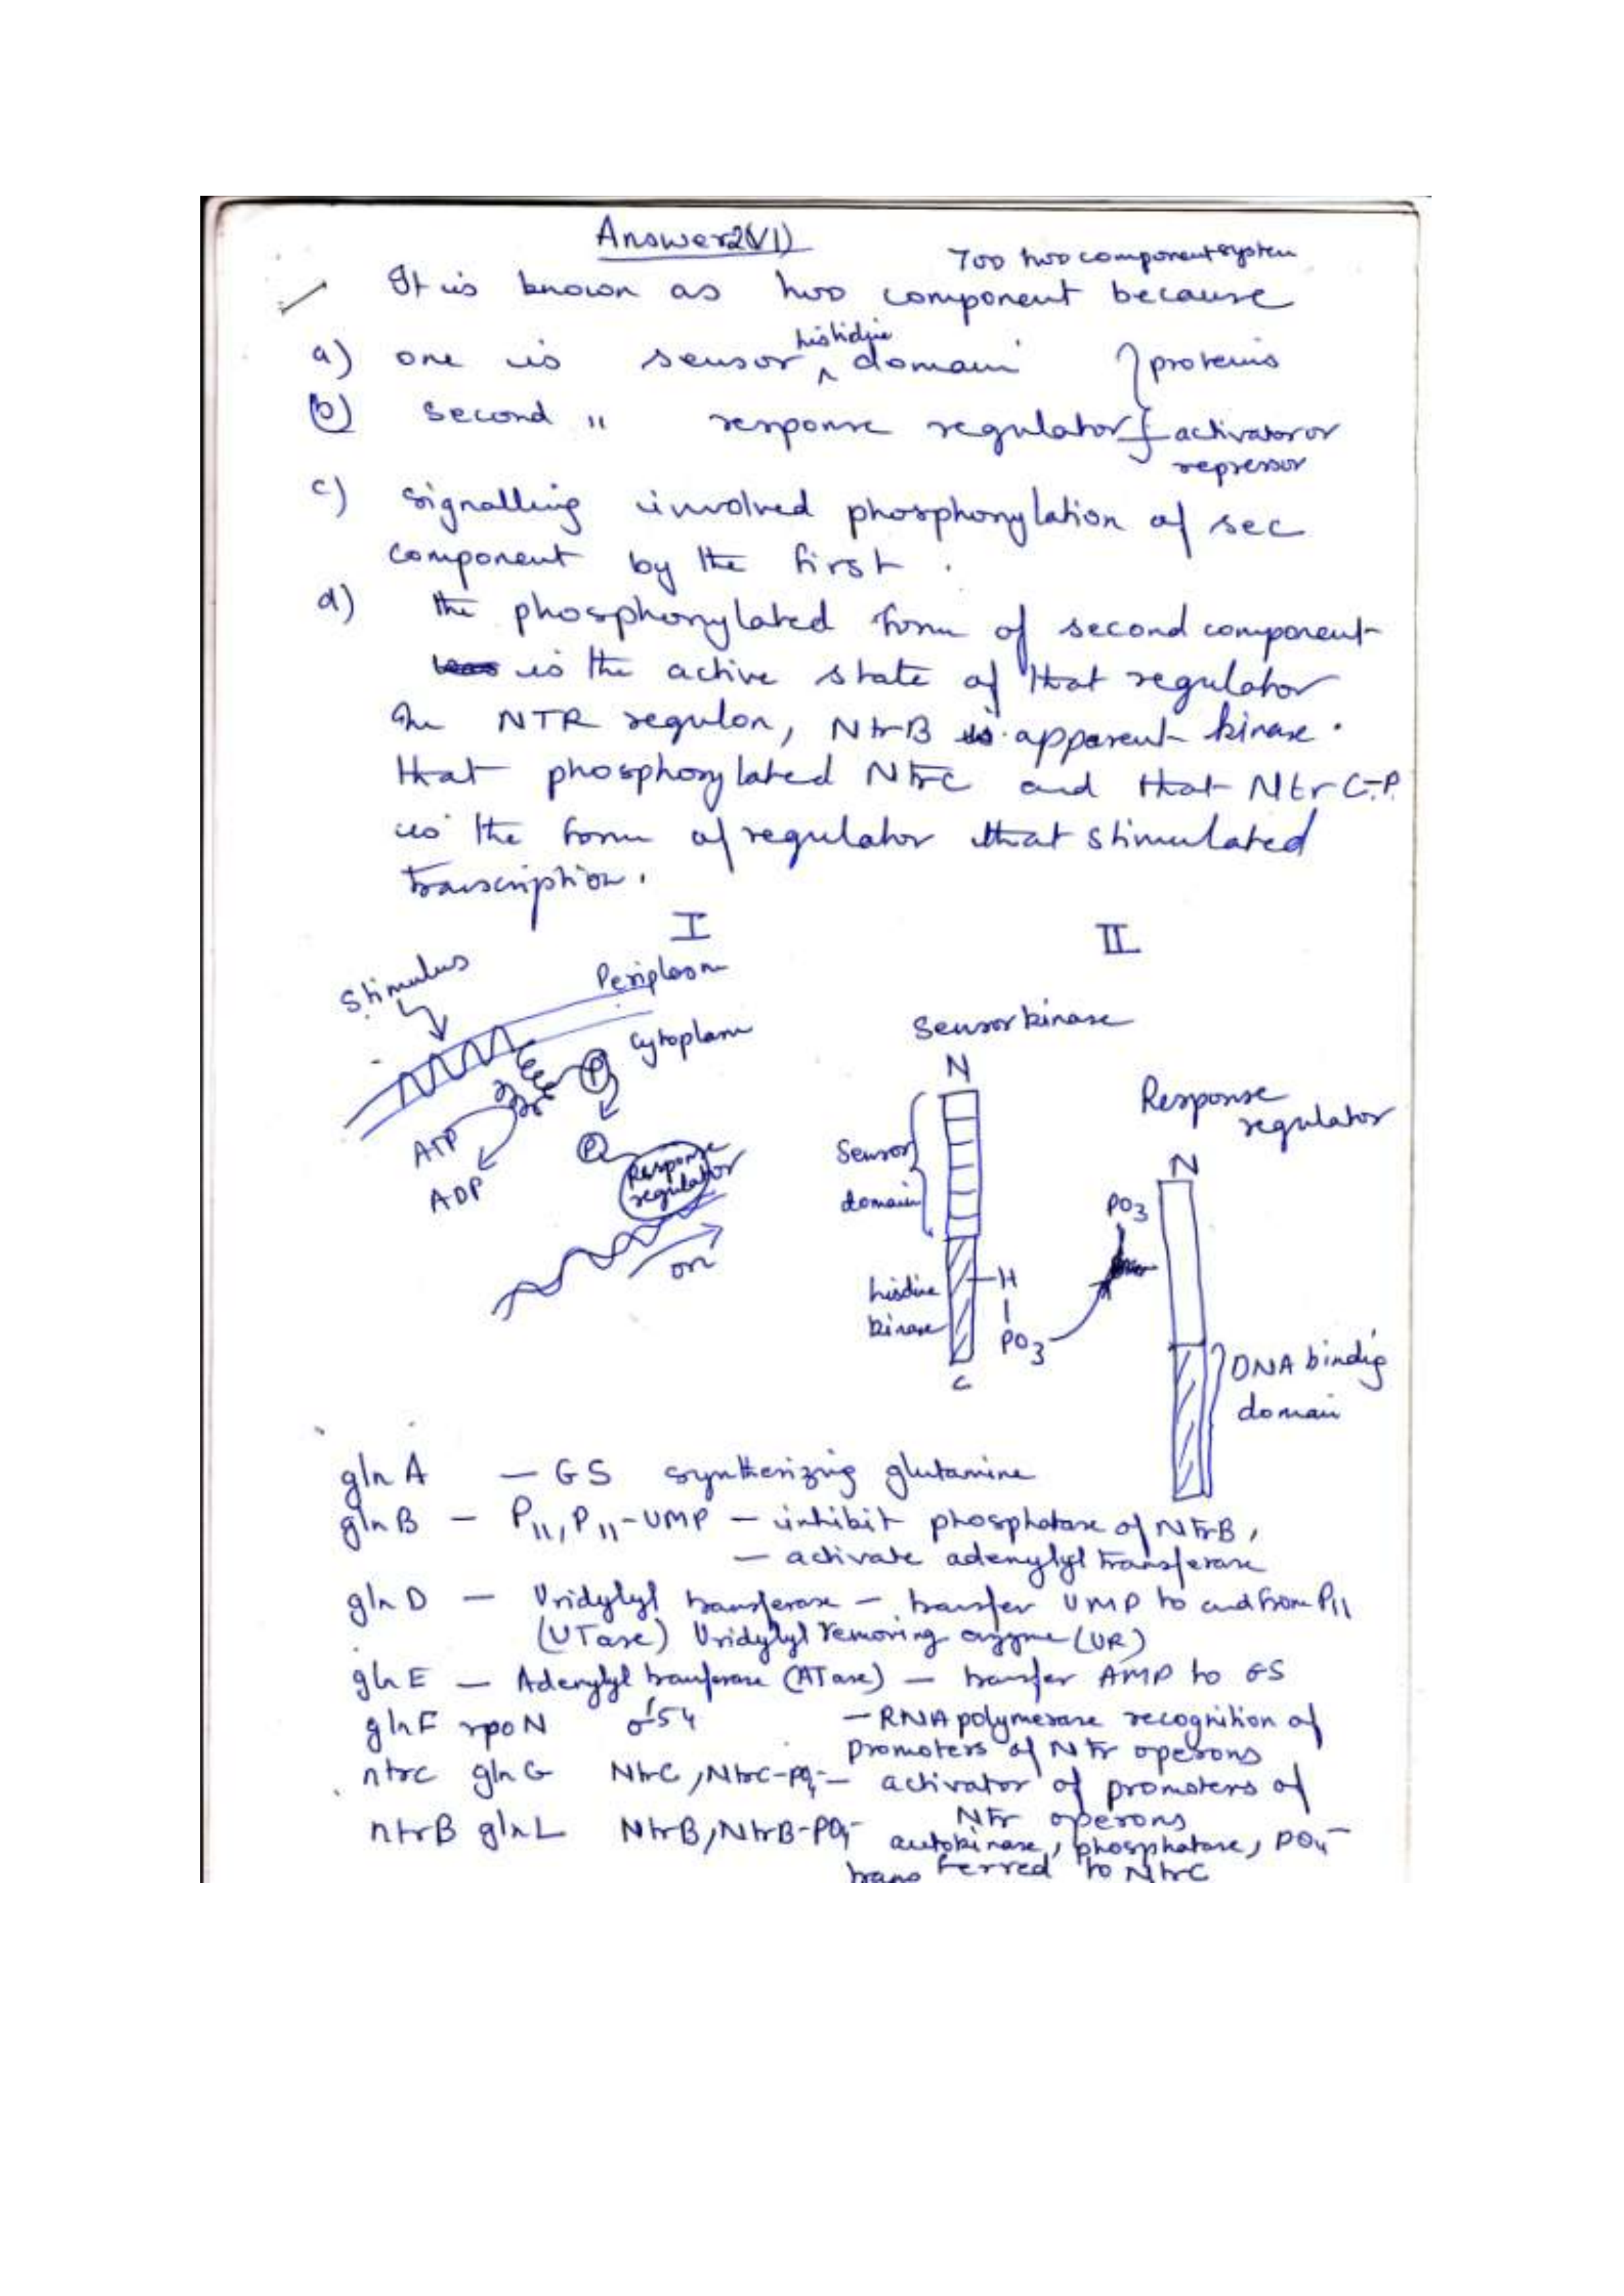 Answer 2(VI)
700 two component system
It is known as two component because
histidine
a) one is sensor ^ domain } proteins
b) second " response regulator } activator or
repressor
c) signalling involved phosphorylation of sec
component by the first.
d) the phosphorylated form of second component
is the active state of that regulator
In NTR regulon, NtrB is apparent kinase.
that phosphorylated NtrC and that NtrC-P.
is the form of regulator that stimulated
transcription.
I
II
Stimulus
Periplasm
Cytoplasm
P
ATP
ADP
P
Response
regulator
on
Sensor kinase
N
Sensor
domain
hisdine
kinase
H
PO3
C
Response
regulator
N
PO3
DNA bindig
domain
gln A — GS synthesizing glutamine
gln B — PII, PII-UMP — inhibit phosphatase of NtrB,
— activate adenylyl transferase
gln D — Uridylyl transferase — transfer UMP to and from PII
(UTase) Uridylyl removing enzyme (UR)
gln E — Adenylyl tranferase (ATase) — transfer AMP to GS
gln F rpoN σ54 — RNA polymerase recognition of
promoters of Ntr operons
ntrc gln G NtrC, NtrC-PO4- — activator of promoters of
Ntr operons
ntrB glnL NtrB, NtrB-PO4- autokinase, phosphatase, PO4-
transferred to NtrC